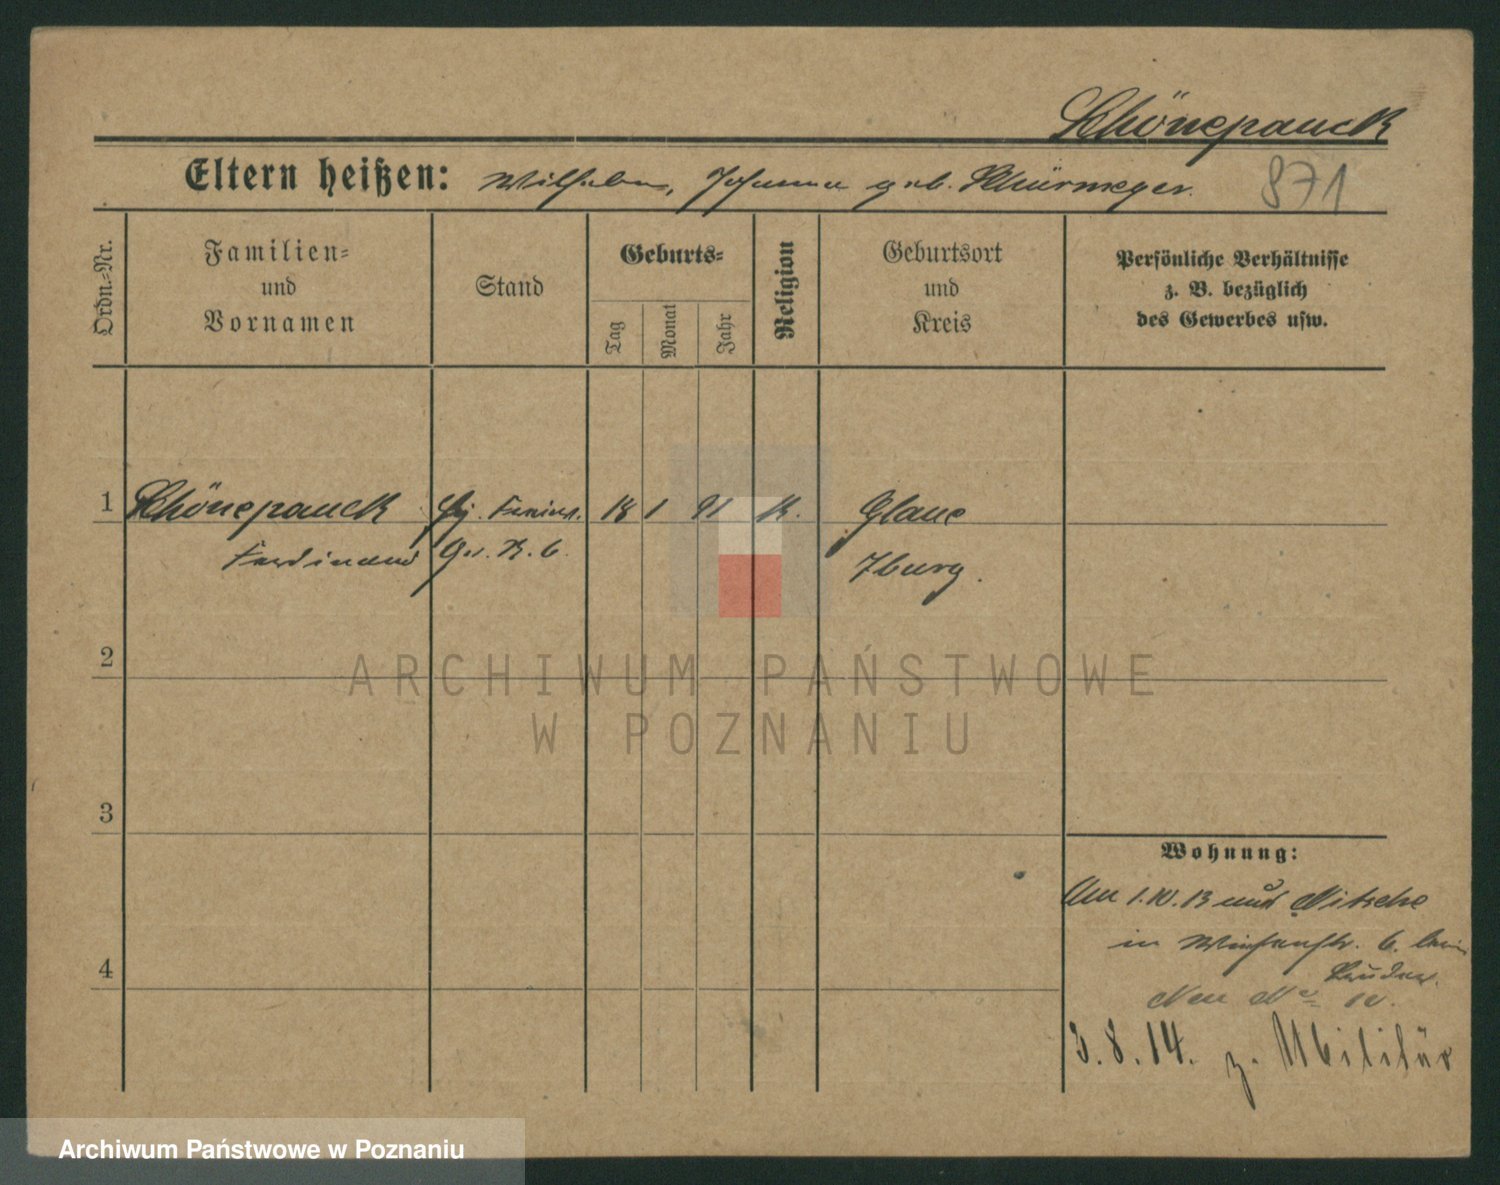 Schönepauck
Eltern heißen: Wilhelm, Johanna geb. Schürmeyer. 871
Ordn.-Nr.
Familien-
und
Vornamen
Stand
Geburts-
Tag
Monat
Jahr
Religion
Geburtsort
und
Kreis
Persönliche Verhältnisse
z. B. bezüglich
des Gewerbes usw.
1 Schönepauck 18 1 91 K. Glane
Ferdinand Iburg.
2
3
4
ARCHIWUM PAŃSTWOWE
W POZNANIU
Wohnung:
Am 1.10.13 nach Nitsche
in 6. beim
Bruder.
Neu No 10.
3.8.14. z. Militär
Archiwum Państwowe w Poznaniu